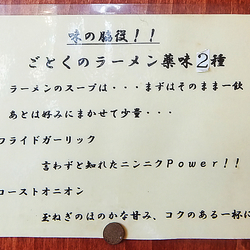 味の脇役!!
ごとくのラーメン薬味2種
ラーメンのスープは・・・まずはそのまま一飲
あとは好みにまかせて少量・・・
フライドガーリック
言わずと知れたニンニクPower!!
ローストオニオン
玉ねぎのほのかな甘み、コクのある一杯に